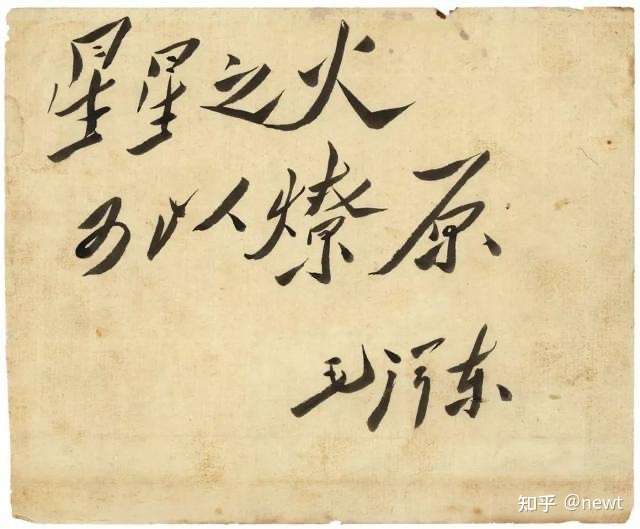 星星之火
可以燎原
毛泽东
知乎 @newt